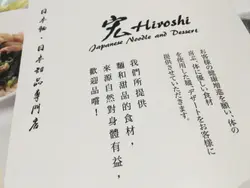 宪 Hiroshi
Japanese Noodle and Dessert
お客様の健康増進を願い、体の
喜ぶ、体に優しい食材
を使用した麺、デザートをお客様に
提供させていただきます。
我們所提供
麵和甜品的食材，
來源自然對身體有益，
歡迎品嚐！
日本麵、日本甜品專門店